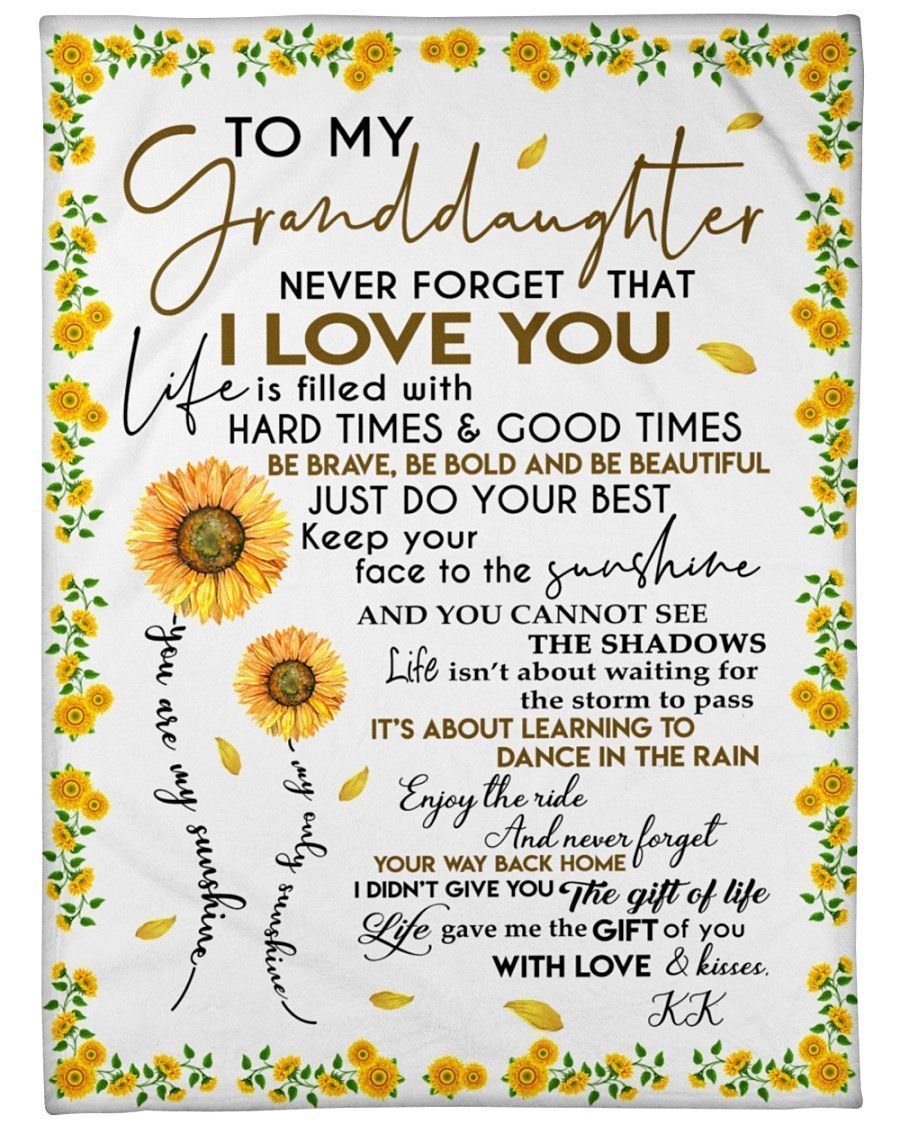 TO MY
Granddaughter
NEVER FORGET THAT
I LOVE YOU
Life is filled with
HARD TIMES & GOOD TIMES
BE BRAVE, BE BOLD AND BE BEAUTIFUL
JUST DO YOUR BEST
Keep your
face to the sunshine
AND YOU CANNOT SEE
THE SHADOWS
Life isn't about waiting for
the storm to pass
IT'S ABOUT LEARNING TO
DANCE IN THE RAIN
Enjoy the ride
And never forget
YOUR WAY BACK HOME
I DIDN'T GIVE YOU The gift of life
Life gave me the GIFT of you
WITH LOVE & kisses.
KK
you are my sunshine
my only sunshine